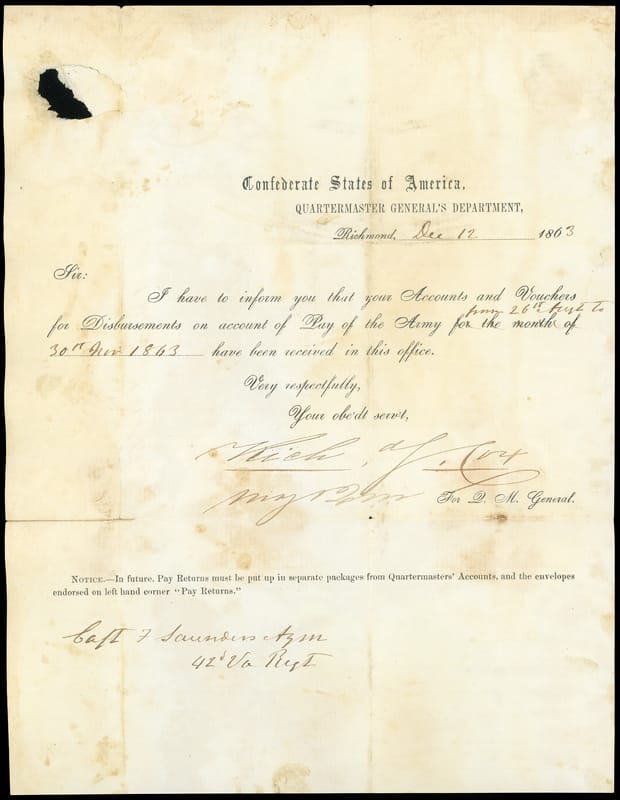 Confederate States of America,
QUARTERMASTER GENERAL'S DEPARTMENT,
Richmond, Dec 12 1863
Sir:
I have to inform you that your Accounts and Vouchers
from 26st Augt to
for Disbursements on account of Pay of the Army for the month of
30st Nov 1863 have been received in this office.
Very respectfully,
Your obe'dt serv't,
Rich d J. Cox
Maj & Qm For Q. M. General.
NOTICE.—In future, Pay Returns must be put up in separate packages from Quartermasters' Accounts, and the envelopes
endorsed on left hand corner "Pay Returns."
Capt F Saunders Aqm
42d Va Regt